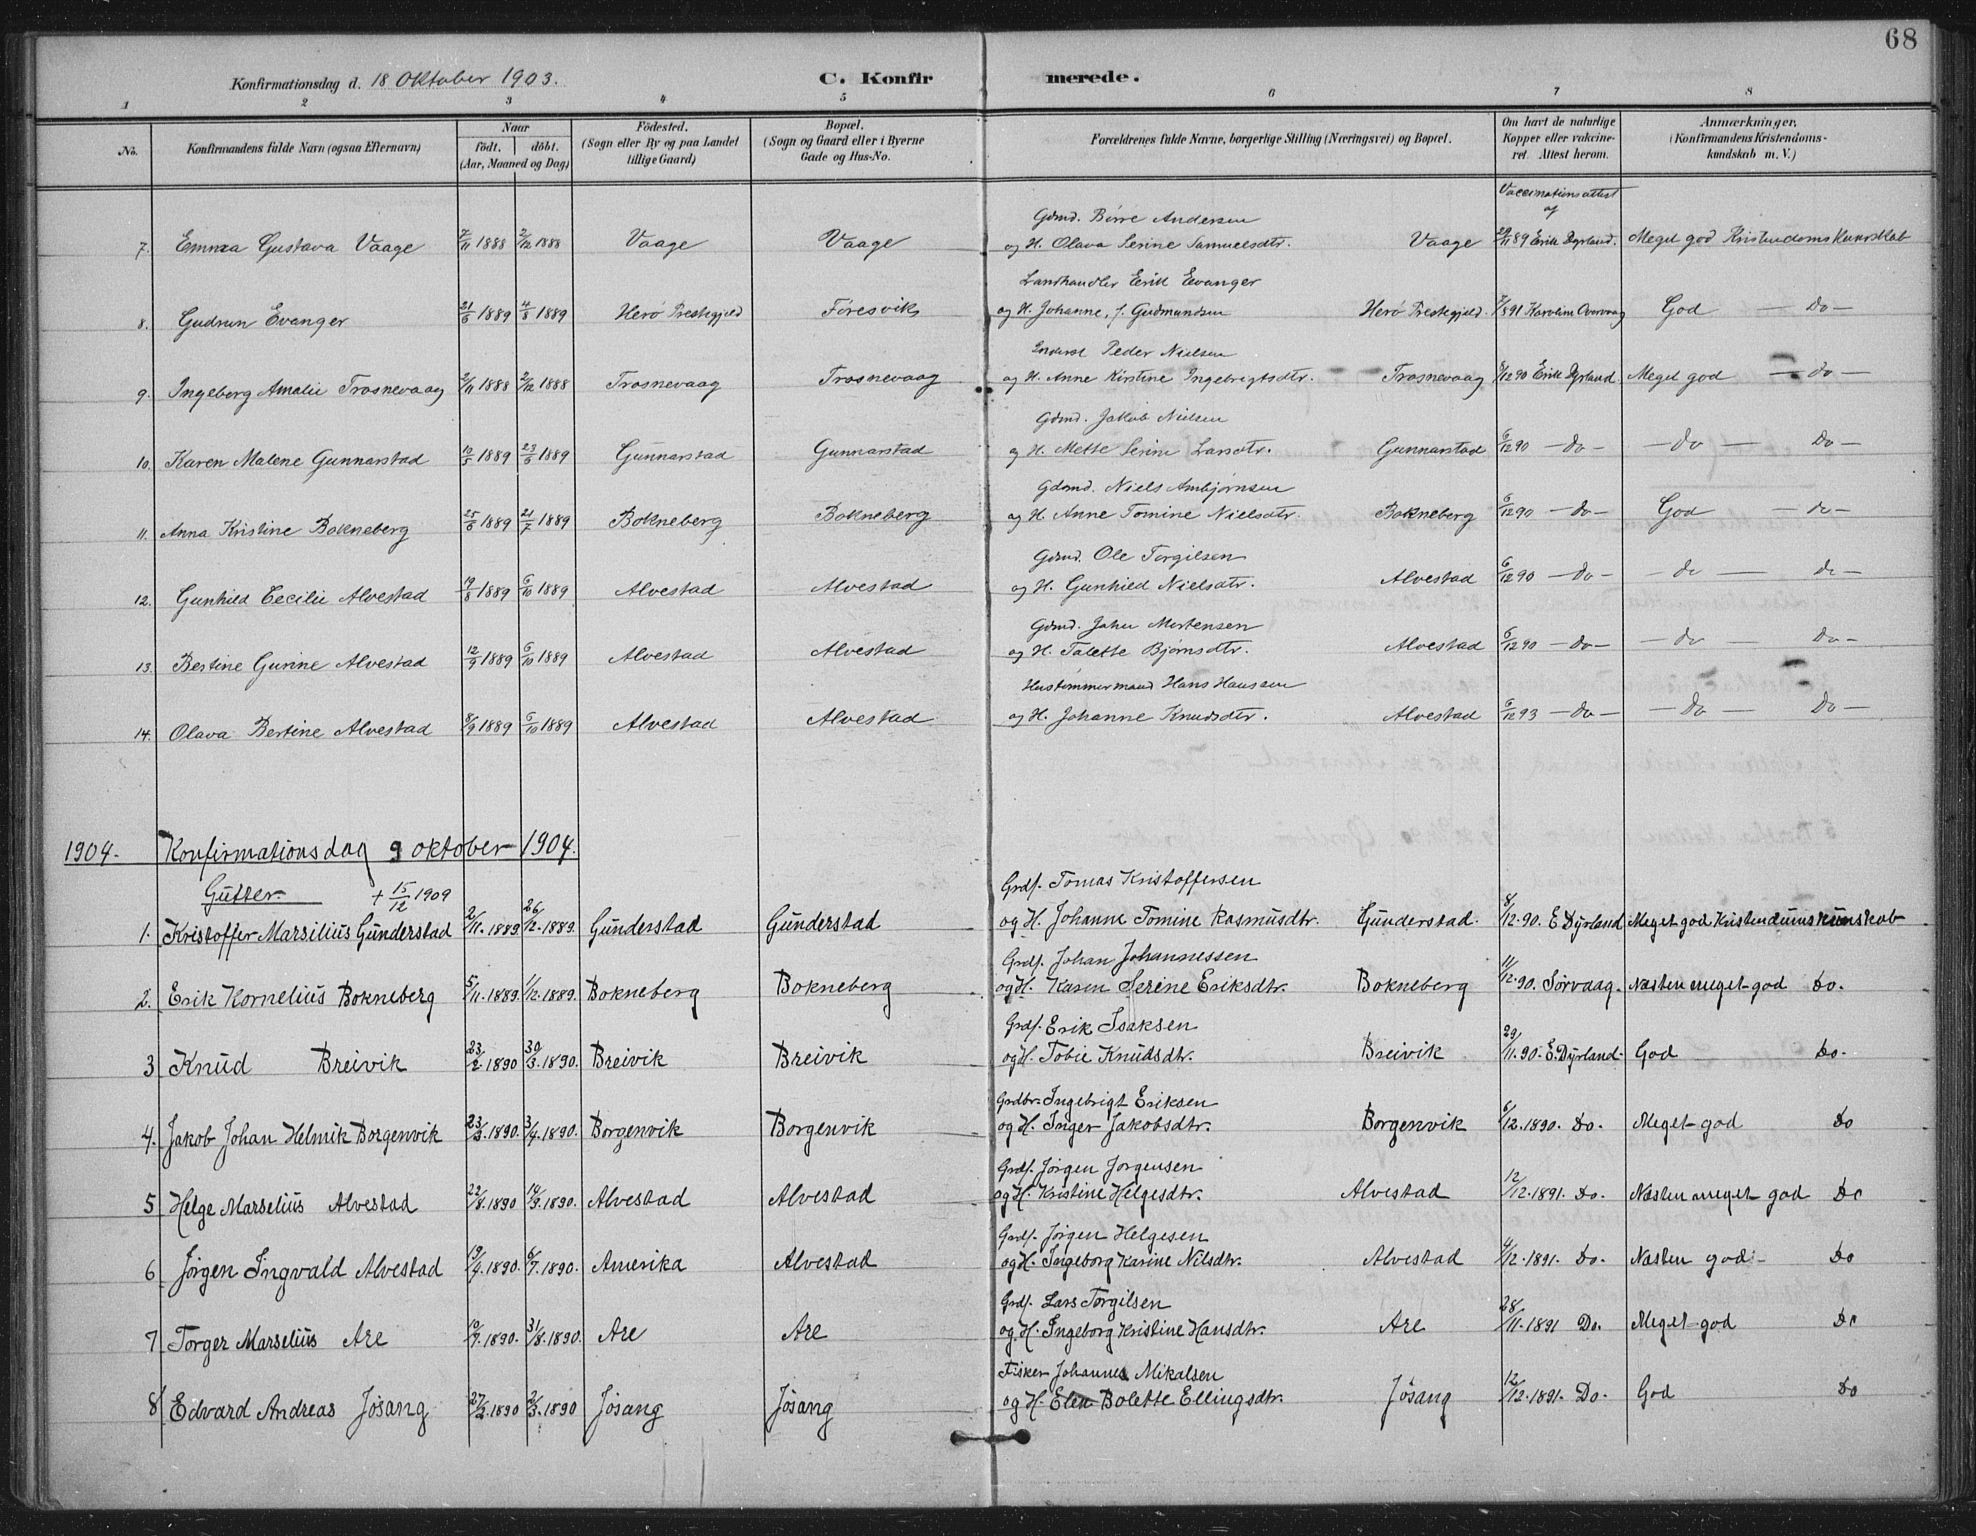 68
Konfirmationsdag d. 18 Oktober 1903. C. Konfirmerede.
1 2 3 4 5 6 7 8
No. Konfirmandens fulde Navn (ogsaa Efternavn) Naar födt. döbt. (Aar, Maaned og Dag) Födested. (Sogn eller By og paa Landet tillige Gaard) Bopæl. (Sogn og Gaard eller i Byerne Gade og Hus-No. Forældrenes fulde Navne, borgerlige Stilling (Næringsvei) og Bopæl. Om havt de naturlige Kopper eller vakcineret. Attest herom. Anmærkninger, (Konfirmandens Kristendomskundskab m. V.)
Vaccinationsattest af
Gdmd. Børre Andersen
7. Emma Gustava Vaage 7/11 1888 2/12 1888 Vaage Vaage og H. Olava Serine Samuelsdtr. Vaage 29/11 89 Erik Dyrland. Meget god Kristendomskundskab
Landhandler Erik Evanger
8. Gudrun Evanger 21/6 1889 4/8 1889 Herø Prestegjeld Føresvik og H. Johanne, f. Gudmundsen Herø Prestegjeld. God — Do —
Peder Nielsen
9. Ingeborg Amalie Trosnevaag 2/11 1888 2/12 1888 Trosnevaag Trosnevaag og H. Anne Kirstine Ingebrigtsdtr. Trosnevaag 6/12 90 Erik Dyrland. Meget god — do —
Gdmd. Jakob Nielsen
10. Karen Malene Gunnarstad 10/5 1889 23/6 1889 Gunnarstad Gunnarstad og H. Mette Serine Larsdtr. Gunnarstad 6/12 90 — do — — do — Do —
Gdmd. Niels Ambjørnsen
11. Anna Kristine Bokneberg 25/6 1889 21/7 1889 Bokneberg Bokneberg og H. Anne Tomine Nielsdtr. Bokneberg 6/12 90 — do — God — do —
Gdmd. Ole Torgilsen
12. Gunhild Cecilie Alvestad 19/8 1889 6/10 1889 Alvestad Alvestad og H. Gunhild Nielsdtr. Alvestad 6/12 90 — do — — do — do —
Gdmd. John Mortensen
13. Bertine Gurine Alvestad 12/9 1889 6/10 1889 Alvestad Alvestad og H. Talette Bjørnsdtr. Alvestad 6/12 90 — do — — do — Do —
Hustømmermand Hans Hanssen
14. Olava Bertine Alvestad 8/9 1889 6/10 1889 Alvestad Alvestad og H. Johanne Knudsdtr. Alvestad 6/12 93 — do — — Do — Do —
1904. Konfirmationsdag 9 oktober 1904.
Gutter. + 15/12 1909 Grdf. Tomas Kristoffersen
1. Kristoffer Marsilius Gunderstad 2/11. 1889 26/12. 1889. Gunderstad Gunderstad og H. Johanne Tomine Rasmusdtr. Gunderstad. 8/12. 90. E Dyrland Meget god Kristendumskunskab
Grdf. Johan Johannessen
2. Erik Kornelius Bokneberg 5/11. 1889. 1/12. 1889. Bokneberg Bokneberg og H. Karen Serine Eriksdtr. Bokneberg 11/12. 90. Sørvaag. Næsten meget god Do.
Grdf. Erik Isaksen
3 Knud Breivik 23/2. 1890 30/3. 1890. Breivik Breivik og H. Tobie Knudsdtr. Breivik 29/11. 90. E. Dyrland. God Do.
Grdbr. Ingebrigt Eriksen
4. Jakob Johan Helmik Borgenvik 23/3. 1890. 3/4. 1890. Borgenvik Borgenvik og H. Inger Jakobsdtr. Borgenvik 6/12. 1890. Do. Meget god Do
Grdf. Jørgen Jørgensen
5 Helge Marselius Alvestad 22/8. 1890 14/9. 1890. Alvestad Alvestad og H. Kristine Helgesdtr. Alvestad 12/12. 1891. Do. Næsten meget god Do
Grdf. Jørgen Helgesen
6 Jørgen Ingvald Alvestad 19/4. 1890. 6/7. 1890. Amerika Alvestad og H. Ingeborg Karine Nilsdtr. Alvestad 4/12. 1891. Do. Næsten god Do
Grdf. Lars Torgilsen
7 Torger Marselius Are 10/7. 1890. 31/8. 1890. Are Are og H. Ingeborg Kristine Hansdtr. Are 28/11. 1891 Do. Meget god Do
Fisker Johannes Mikalsen
8 Edvard Andreas Jösang 27/2. 1890 2/3. 1890 Jösang Jösang og H. Elen Bolette Ellingsdtr. Jösang 12/12. 1891. Do. God Do